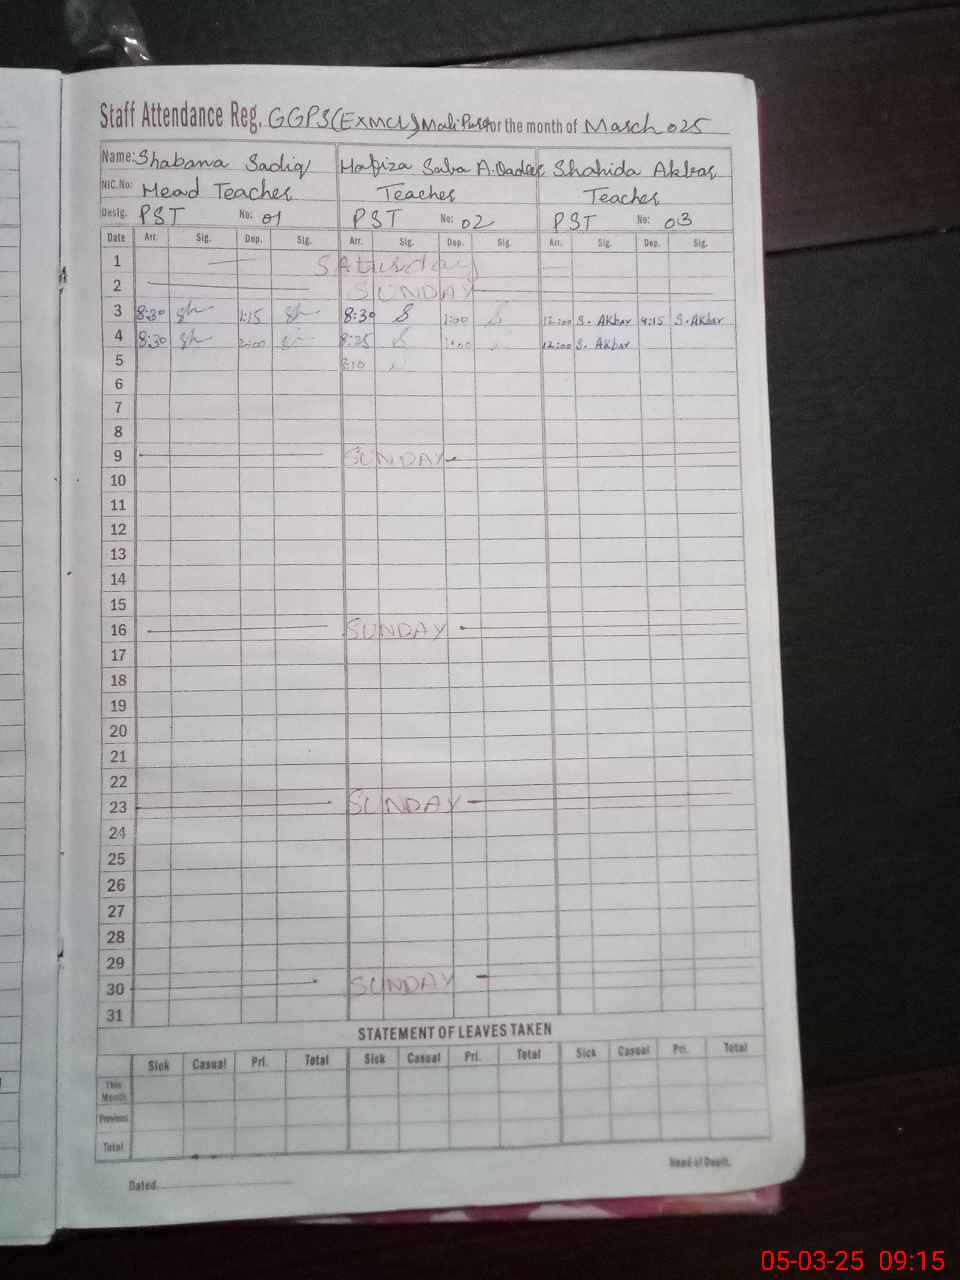 Staff Attendance Reg. GGPS(ExMCL) for the month of March 025
Name: Shabana Sadiq Hafiza Saba A.Qadeer Shahida Akbar
NIC.No: Head Teacher Teacher Teacher
Desig. PST No: 01 PST No: 02 PST No: 03
Date Arr. Sig. Dep. Sig. Arr. Sig. Dep. Sig. Arr. Sig. Dep. Sig.
1 SAturday
2 SUNDAY
3 8:30 1:15 8:30 1:00 12:00 S. Akbar 4:15 S. Akbar
4 8:30 2:00 8:25 12:00 S. Akbar
5
6
7
8
9 SUNDAY
10
11
12
13
14
15
16 SUNDAY
17
18
19
20
21
22
23 SUNDAY
24
25
26
27
28
29
30 SUNDAY
31
STATEMENT OF LEAVES TAKEN
Sick Casual Pri. Total Sick Casual Pri. Total Sick Casual Pri. Total
This Month
Previous
Total
Head of Deptt.
Dated
05-03-25 09:15